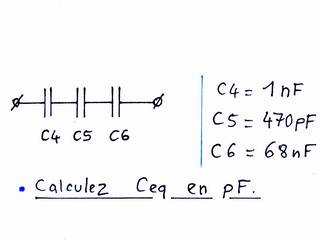 C4 C5 C6
C4 = 1nF
C5 = 470pF
C6 = 68nF
• Calculez Ceq en pF.